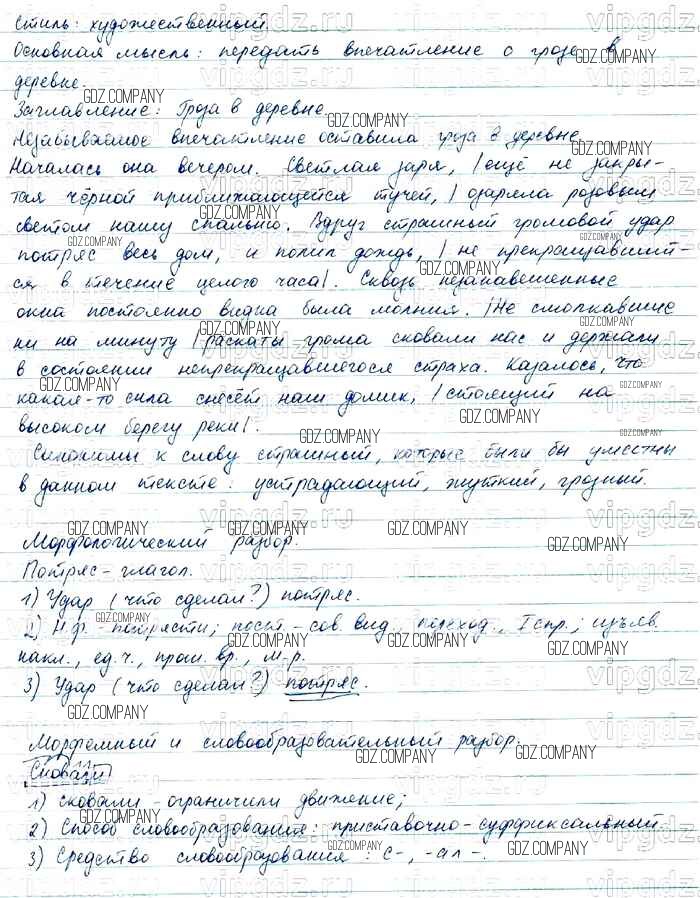 Стиль: художественный
Основная мысль: передать впечатление о грозе в
деревне.
Заглавление: Гроза в деревне
Незабываемое впечатление оставила гроза в деревне.
Началась она вечером. Светлая заря, |ещё не закры-
тая чёрной приближающейся тучей,| озаряла розовым
светом нашу спальню. Вдруг страшный громовой удар
потряс весь дом, и полил дождь, |не прекращавший-
ся в течение целого часа|. Сквозь незанавешенные
окна постоянно видна была молния. |Не смолкавшие
ни на минуту| раскаты грома сковали нас и держали
в состоянии непрекращавшегося страха. Казалось, что
какая-то сила снесёт наш домик, |стоящий на
высоком берегу реки|.
Синонимы к слову страшный, которые были бы уместны
в данном тексте: устрадающий, жуткий, грозный.
Морфологический разбор.
Потряс - глагол.
1) Удар (что сделал?) потряс.
2) Н.ф. - потрясти; пост. - сов. вид, переход., I спр.; изъяв.
накл., ед. ч., прош. вр., м. р.
3) Удар (что сделал?) потряс.
Морфемный и словообразовательный разбор.
Сковали
1) сковали - ограничили движение;
2) Способ словообразования: приставочно-суффиксальный
3) Средство словообразования: с-, -ал-.
GDZ.COMPANY
vipgdz.ru